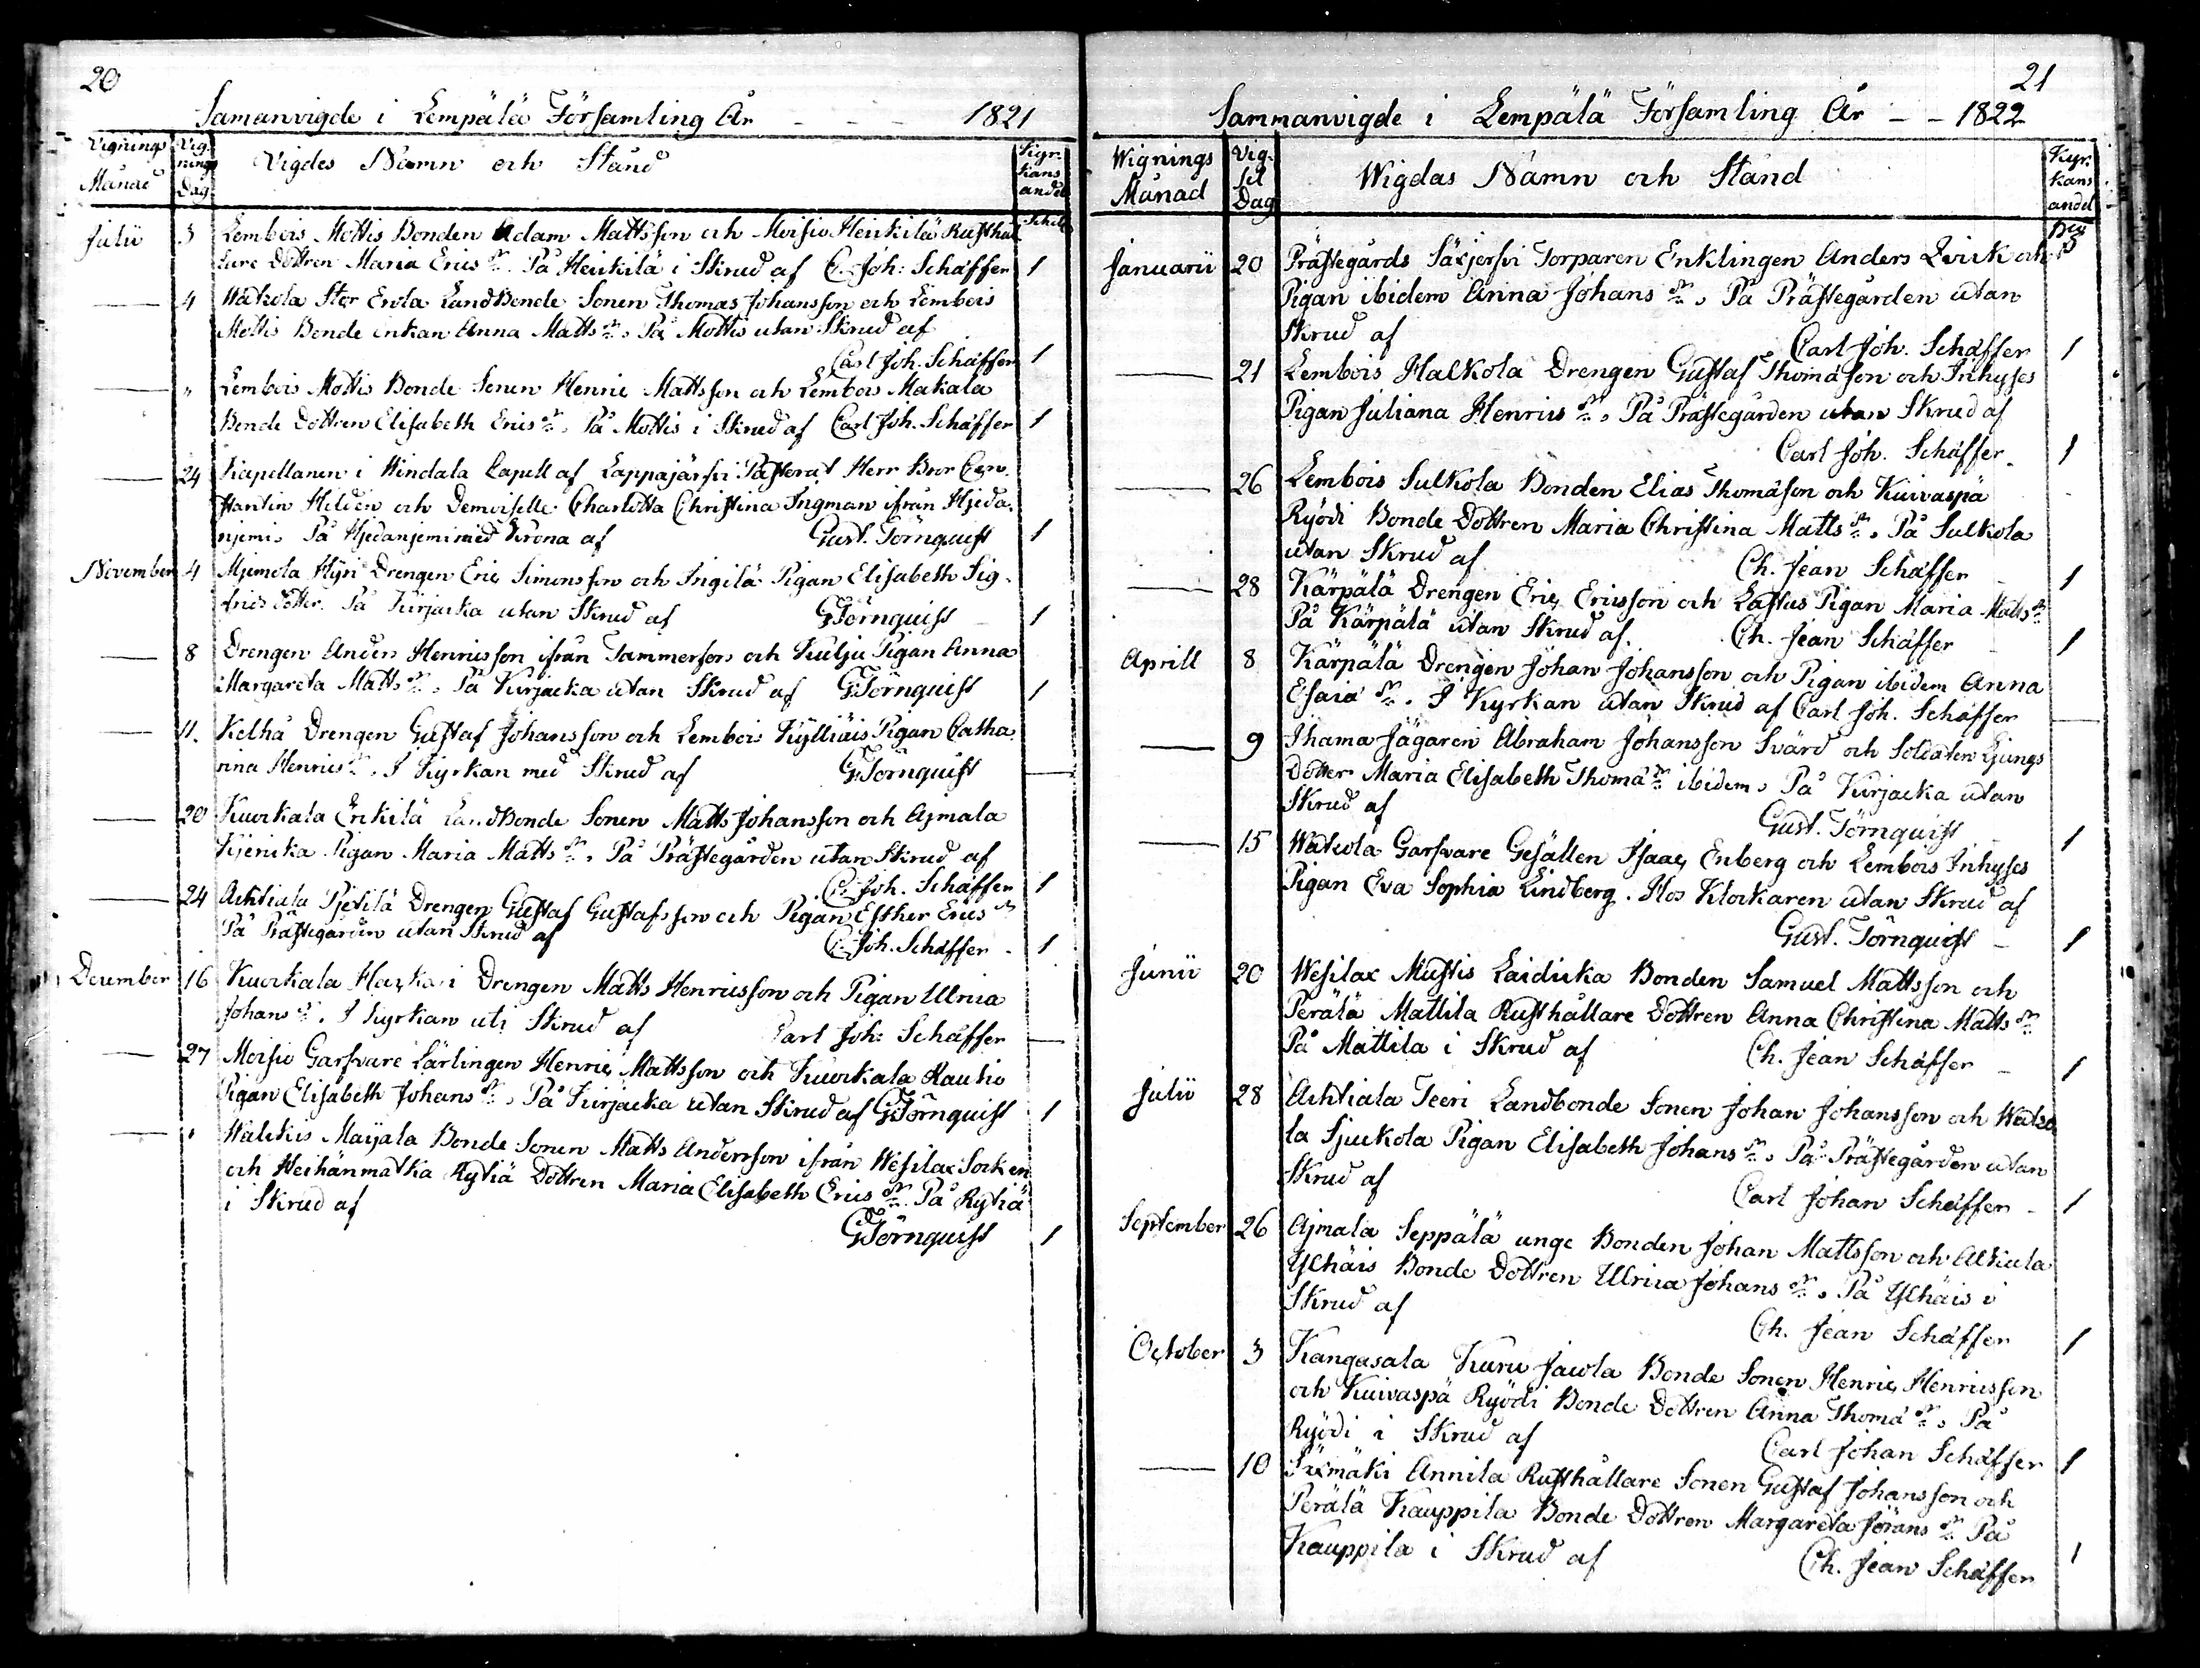 20
Samanvigde i Lempälä Församling År - - - 1821
Vignings Månad
Vignings Dag
Vigdes Namn och Stånd
Kyrkans andel
Julii 3 Lembois Mottis Bonden Adam Mattsson och Moisio Heikilä Rusthål
lare Dottren Maria Erics dr. På Heikilä i Skrud af C. Joh: Schäffer 1
— 4 Wakola Stor Enola Landbonde Sonen Thomas Johansson och Lembois
Mottis Bonde Enkan Anna Matts dr. På Mottis utan Skrud af
Carl Joh. Schäffer 1
— " Lembois Mottis Bonde Sonen Henric Mattsson och Lembois Makala
Bonde Dottren Elisabeth Erics dr. På Mottis i Skrud af Carl Joh. Schäffer 1
— 24 Kapellanen i Windala Capell af Lappajärfvi Pastorat Herr Bror Con
stantin Heldén och Demoiselle Charlotta Christina Ingman ifrån Hjeda
njemi. På Hjedanjemi med Krona af Gust. Törnquist 1
November 4 Mjemola Hyri Drengen Eric Simonsson och Ingilä Pigan Elisabeth Sig
frids dotter. På Kurjacka utan Skrud af G Törnquist 1
— 8 Drengen Anders Henricsson ifrån Tammerfors och Kulju Pigan Anna
Margareta Matts dr. På Kurjacka utan Skrud af G Törnquist 1
— 11. Kelhä Drengen Gustaf Johansson och Lembois Kylliäis Pigan Catha
rina Henrics dr. I Kyrkan med Skrud af G Törnquist —
— 20 Kuokala Erkilä Landbonde Sonen Matts Johansson och Ajmala
Kjenika Pigan Maria Matts dr. På Prästegården utan Skrud af
C. Joh. Schäffer 1
— 24 Achtiala Pjetilä Drengen Gustaf Gustafsson och Pigan Esther Erics dr
På Prästegården utan Skrud af C. Joh. Schäffer - 1
December 16 Kuokala Drengen Matts Henricsson och Pigan Ulrica
Johans dr. I Kyrkan uti Skrud af Carl Joh: Schäffer —
— 27 Moisio Garfvare Lärlingen Henric Mattsson och Kuokala Rautio
Pigan Elisabeth Johans dr. På Kurjacka utan Skrud af G Törnquist 1
— " Walckis Maijala Bonde Sonen Matts Andersson ifrån Wesilax Socken
och Heihänmatka Rytiä Dottren Maria Elisabeth Erics dr. På Rytiä
i Skrud af
G Törnquist 1
21
Sammanvigde i Lempälä Församling År - - 1822
Wignings Månad
Dag
Wigdas Namn och Stånd
Kyrkans andel
Januarii 20 Prästegårds Säxjerfvi Torparen Enklingen Anders Qvick och
Pigan ibidem Anna Johans dr. På Prästegården utan
Skrud af Carl Joh. Schäffer 1
— 21 Lembois Halkola Drengen Gustaf Thomasson och Inhyses
Pigan Juliana Henrics dr. På Prästegården utan Skrud af
Carl Joh. Schäffer. 1
— 26 Lembois Sulkola Bonden Elias Thomasson och Kuivaspä
Ryödi Bonde Dottren Maria Christina Matts dr. På Sulkola
utan Skrud af Ch. Jean Schäffer 1
— 28 Kärpälä Drengen Eric Ericsson och Lastus Pigan Maria Matts dr
På Kärpälä utan Skrud af. Ch. Jean Schäffer 1
Aprill 8 Kärpälä Drengen Johan Johansson och Pigan ibidem Anna
Esaiæ dr. I Kyrkan utan Skrud af Carl Joh. Schäffer —
— 9 Ihama Jägaren Abraham Johansson Svärd och Soldaten Ljungs
Dotter Maria Elisabeth Thomæ dr ibidem. På Kurjacka utan
Skrud af Gust. Törnquist 1
— 15 Wakola Garfvare Gesällen Isaac Enberg och Lembois Inhyses
Pigan Eva Sophia Lindberg. Hos Klockaren utan Skrud af
Gust. Törnquist - 1
Junii 20 Wesilax Mustis Laidicka Bonden Samuel Mattsson och
Perälä Mattila Rusthållare Dottren Anna Christina Matts dr
På Mattila i Skrud af Ch. Jean Schäffer - 1
Julii 28 Achtiala Teeri Landbonde Sonen Johan Johansson och Wako
la Sjuckola Pigan Elisabeth Johans dr. På Prästegården utan
Skrud af Carl Johan Schäffer - 1
September 26 Ajmala Seppälä unge Bonden Johan Mattsson och Alkula
Ylhäis Bonde Dottren Ulrica Johans dr. På Ylhäis i
Skrud af Ch. Jean Schäffer 1
October 3 Kangasala Kuru Jacola Bonde Sonen Henric Henricsson
och Kuivaspä Ryödi Bonde Dottren Anna Thomæ dr. På
Ryödi i Skrud af Carl Johan Schäffer 1
— 10 Säxmäki Annila Rusthållare Sonen Gustaf Johansson och
Perälä Kauppila Bonde Dottren Margareta Jörans dr På
Kauppila i Skrud af Ch. Jean Schäffer 1